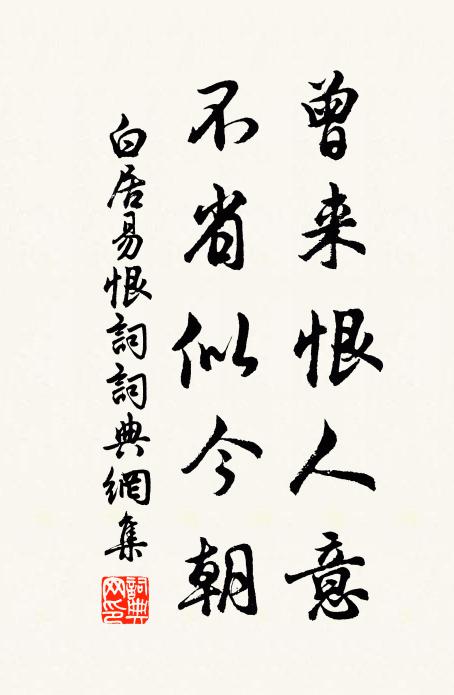 曾来恨人意
不省似今朝
白居易恨詞詞典網集
詞典
网印